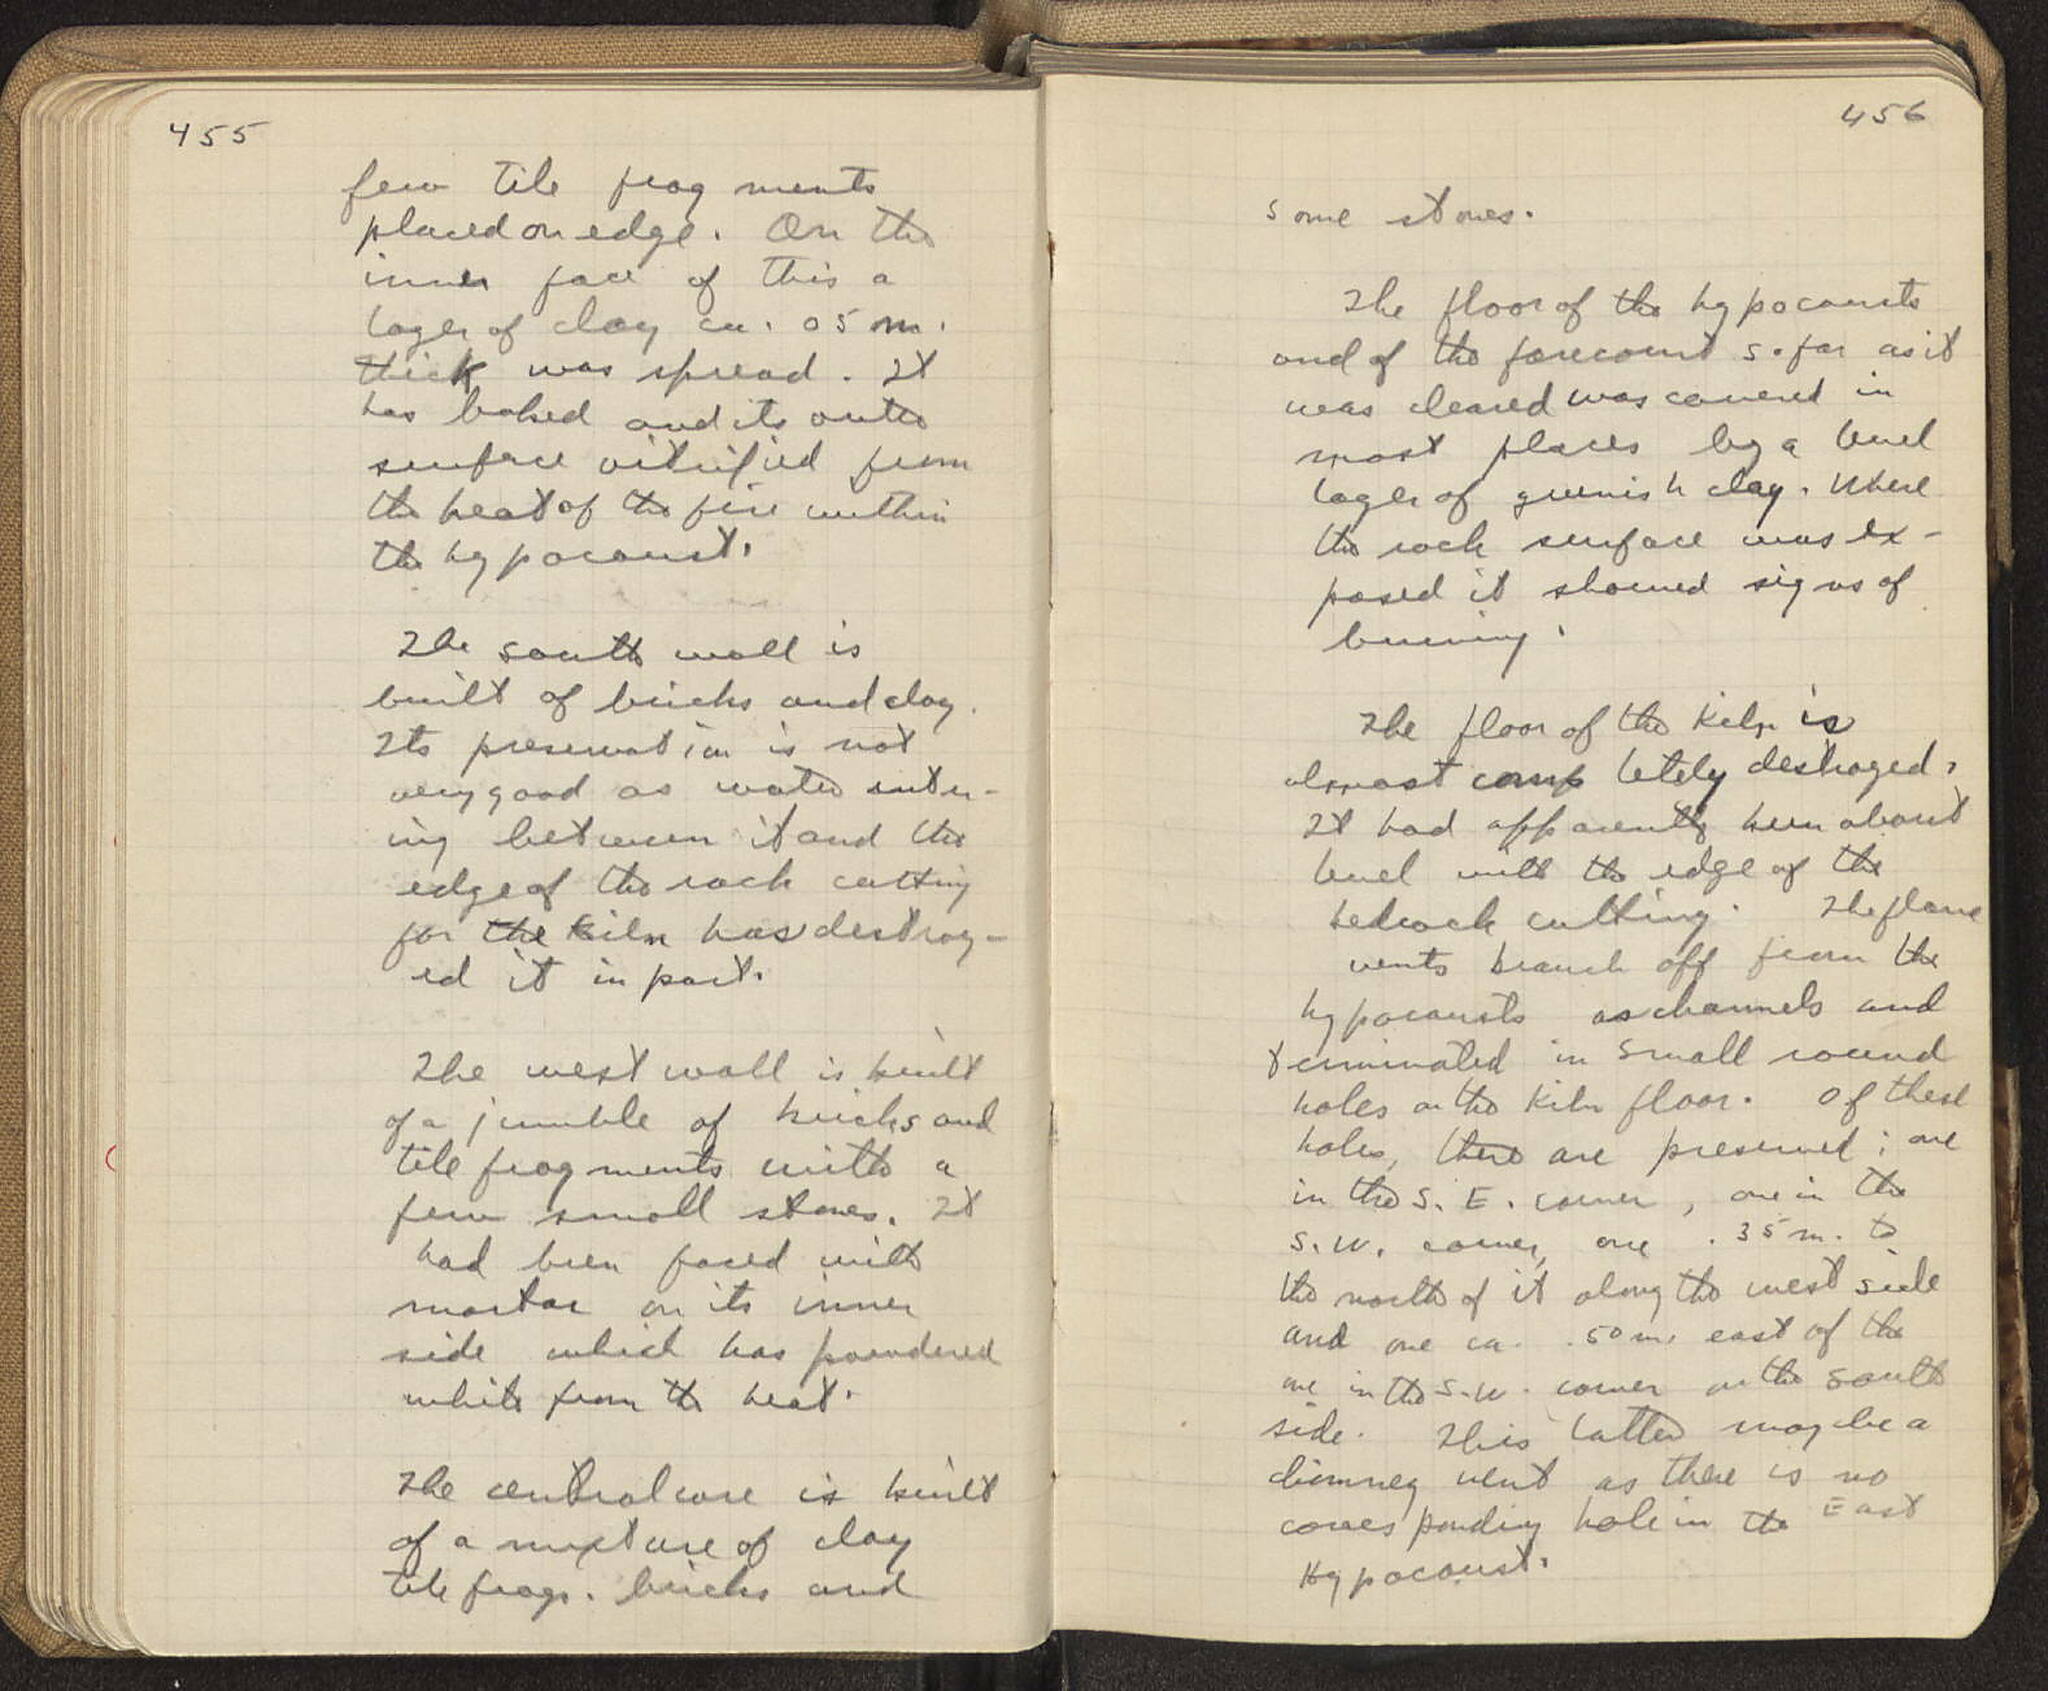 455
few tile fragments
placed on edge. On the
inner face of this a
layer of clay ca. 05 m.
thick was spread. It
has baked and its outer
surface vitrified from
the heat of the fire within
the hypocaust.
The south wall is
built of bricks and clay.
Its preservation is not
very good as water enter-
ing between it and the
edge of the rock cutting
for the kiln has destroy-
ed it in part.
The west wall is built
of a jumble of bricks and
tile fragments with a
few small stones. It
had been faced with
mortar on its inner
side which has powdered
white from the heat.
The central core is built
of a mixture of clay
tile frags. bricks and
456
some stones.
The floor of the hypocausts
and of the forecourt so far as it
was cleared was covered in
most places by a level
layer of greenish clay. Where
the rock surface was ex-
posed it showed signs of
burning.
The floor of the kiln is
almost completely destroyed.
It had apparently been about
level with the edge of the
bedrock cutting. The flame
vents branch off from the
hypocausts as channels and
terminated in small round
holes on the kiln floor. Of these
holes, three are preserved; one
in the S. E. corner, one in the
S. W. corner, one .35 m. to
the north of it along the west side
and one ca. .50 m. east of the
one in the S. W. corner on the south
side. This latter may be a
chimney vent as there is no
corresponding hole in the East
Hypocaust.